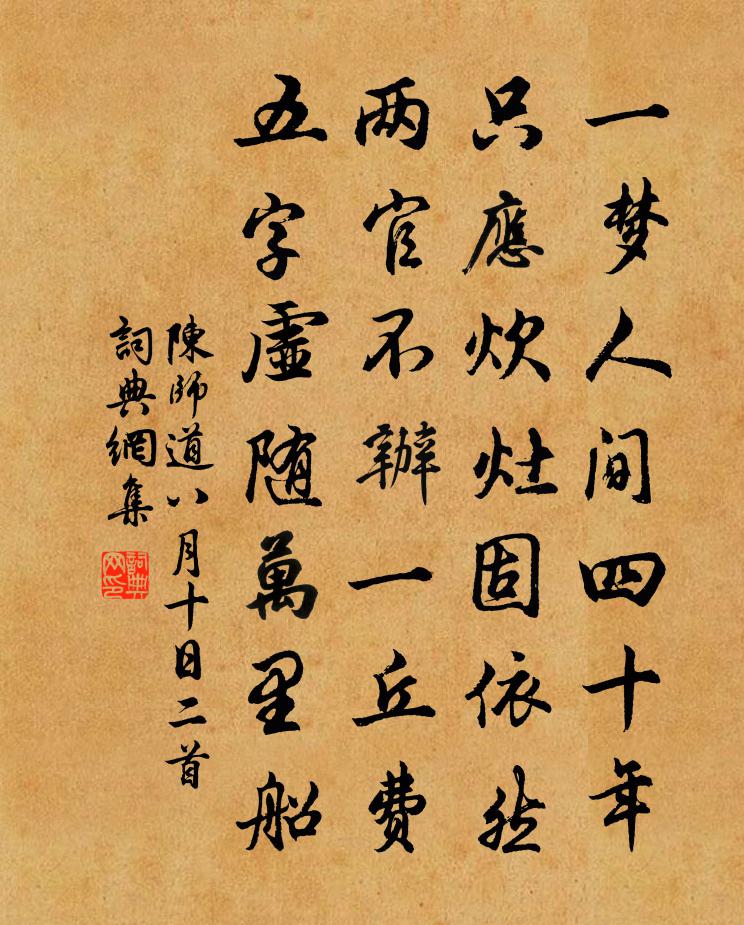 一梦人间四十年
只應炊灶固依然
两官不辦一丘費
五字虛随萬里船
陳師道八月十日二首
詞典網集
詞典网印